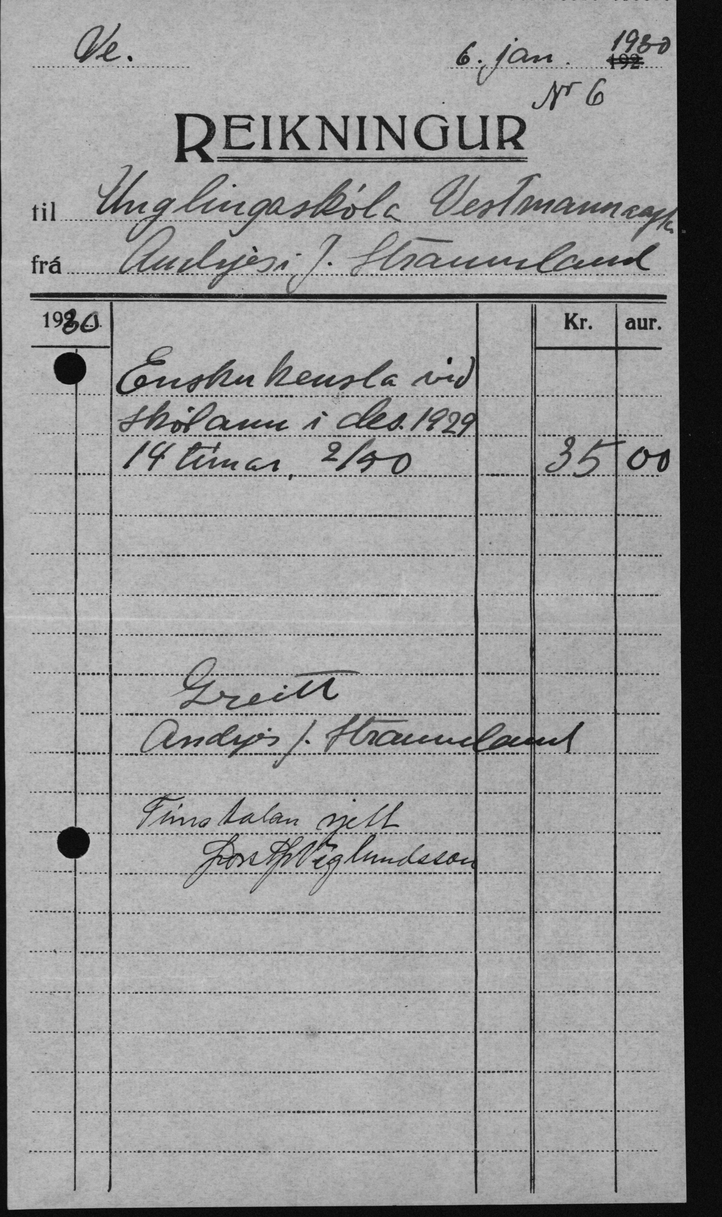 Ve. 6. jan. 1930
Nr 6
REIKNINGUR
til Unglingaskóla Vestmannaeyja
frá Andrjesi J. Straumland
1930 Kr. aur.
Enskukensla við
skólann í des. 1929
14 tímar, 2/50 35 00
Greitt
Andrjes J. Straumland
Tímatalan rjett
Þorst Þ Víglundsson